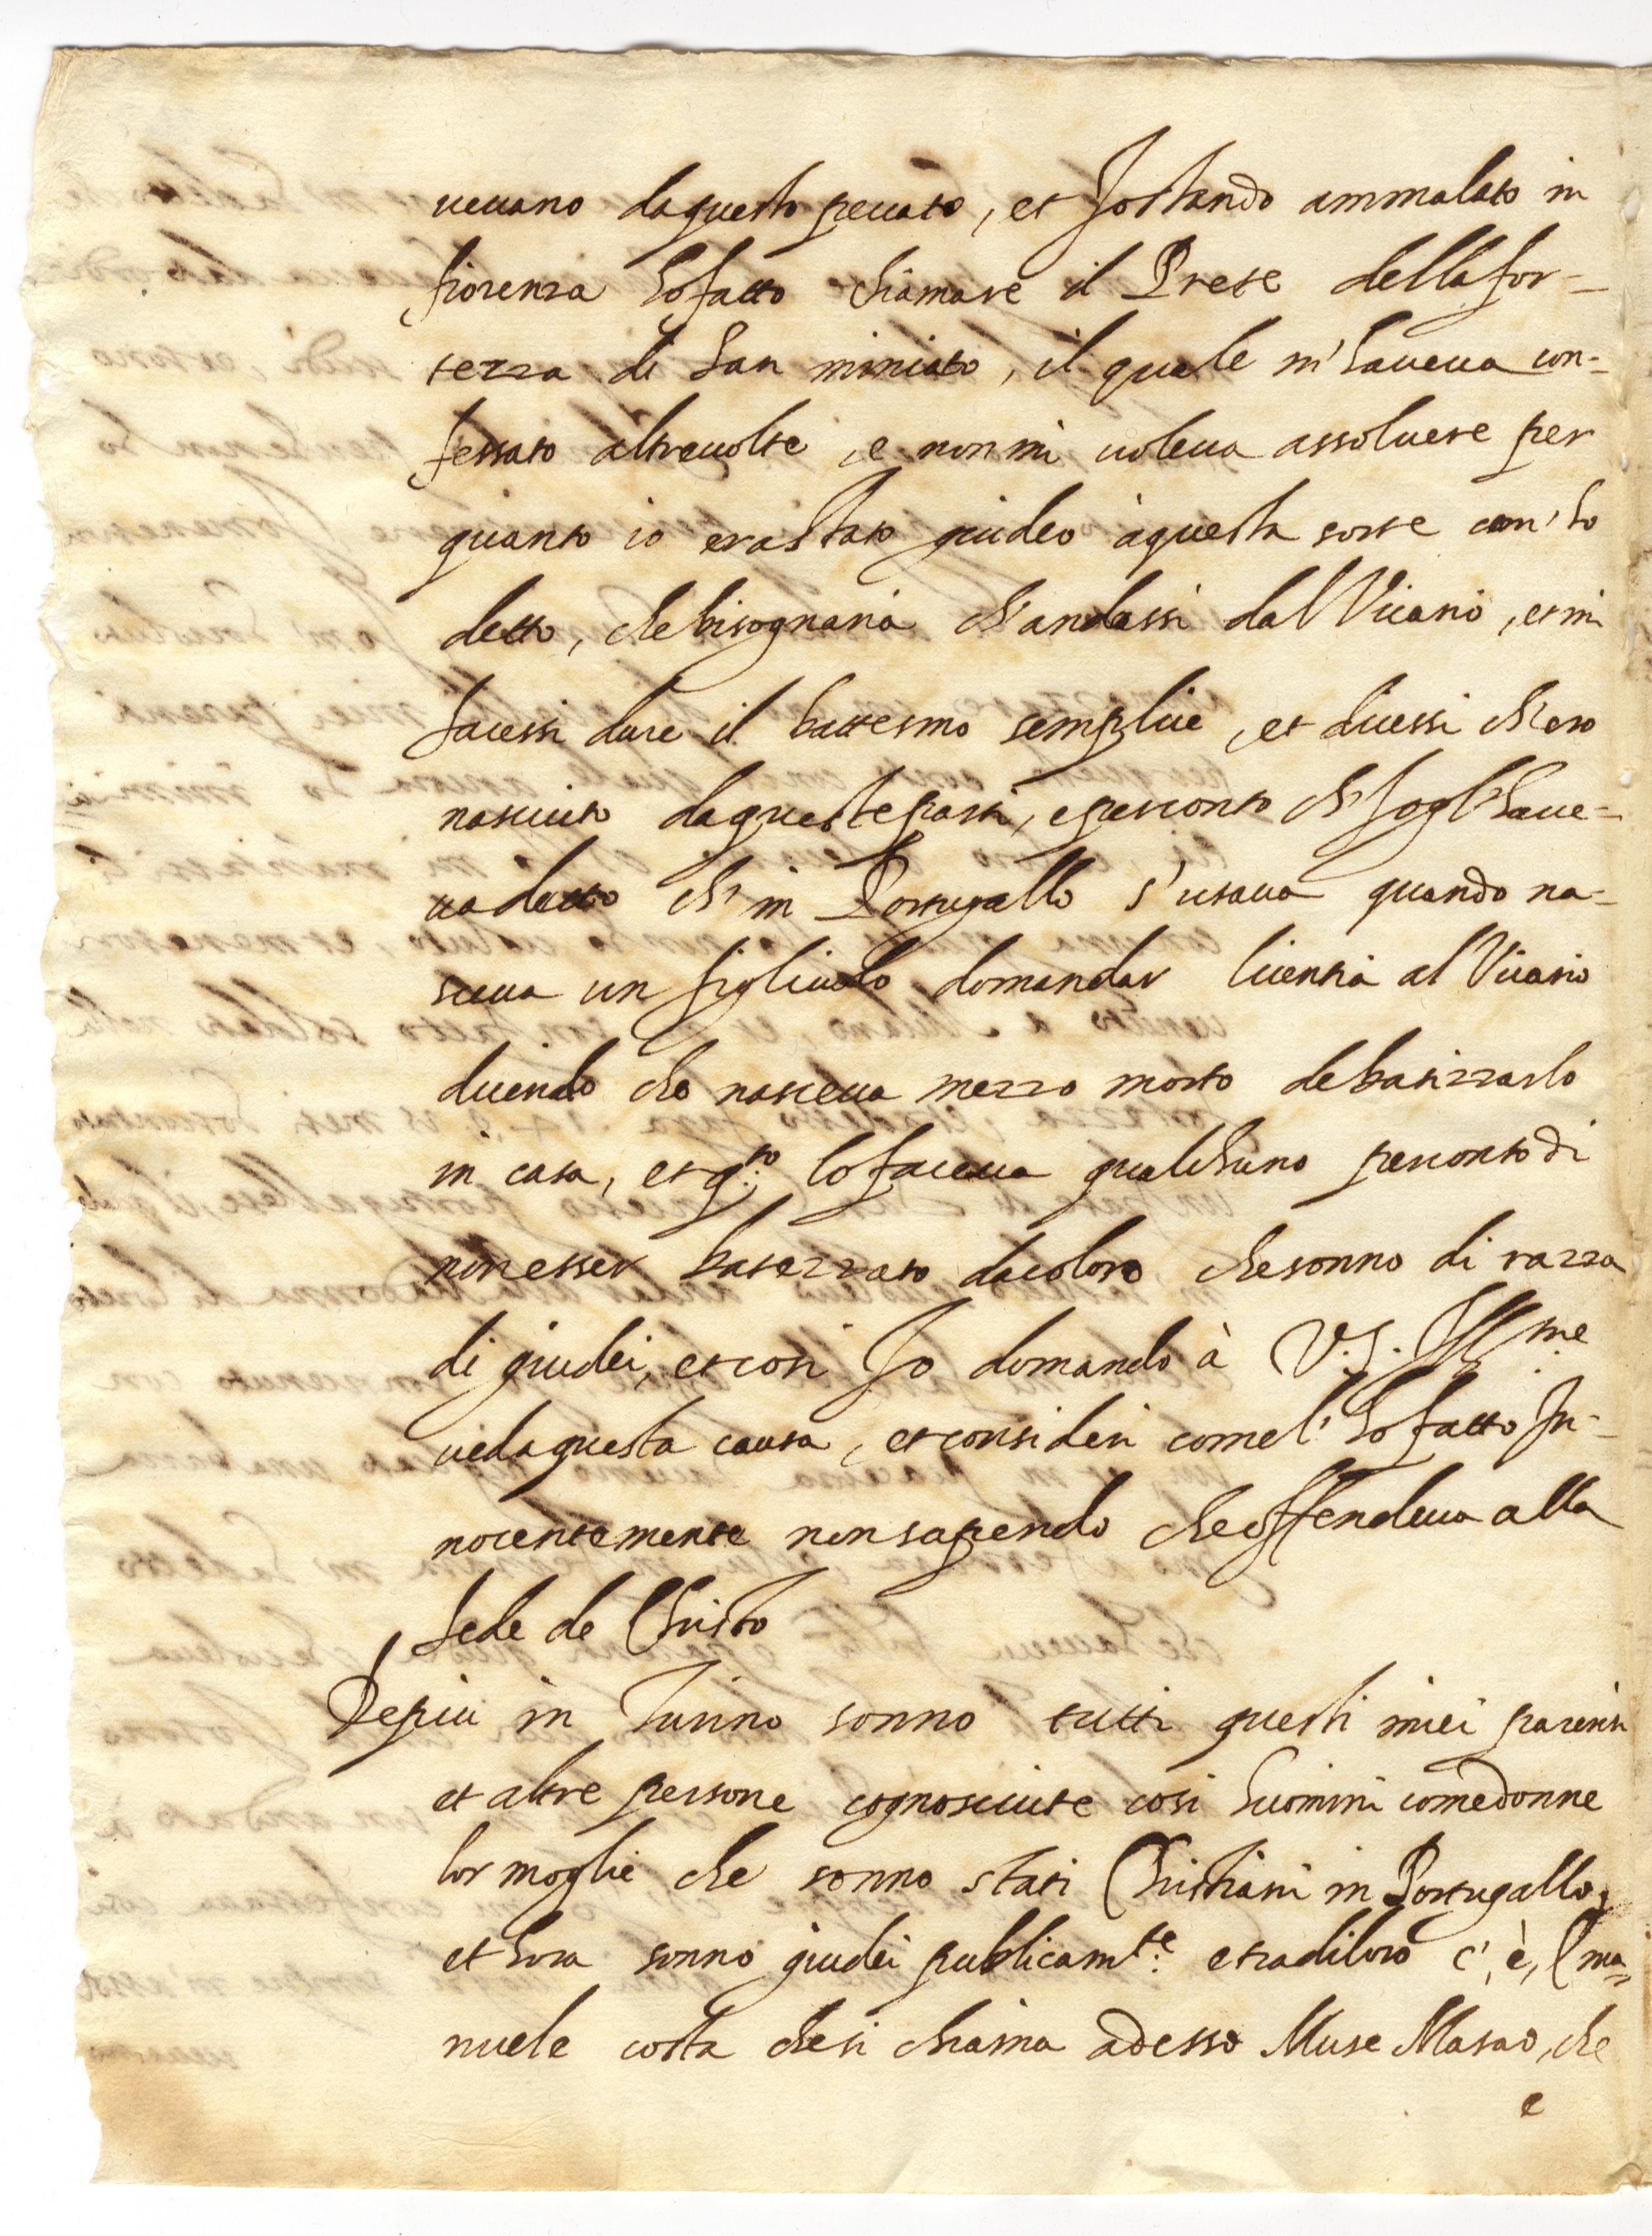 ueuano daquesto peccato, et Jostando ammalato in
fiorenza ho fatto chiamare il Prete della for-
tezza di San miniato, il quale m'haueua con-
fessato altreuolte, e non mi uoleua assoluere per
quanto io erastato giudeo àquesta sorte com' ho
detto, chebisognaria ch'andassi dal Vicario, et mi
facessi dare il battesmo semplice, et dicessi ch'ero
nasciuto daqueste parti, e perconto ch' Jo gl'haue-
ua detto ch' in Portugallo s'usaua quando na-
sceua un figliuolo domandar licentia al Vicario
dicendo che nasceua mezzo morto debatizzarlo
in casa, et q.to lo faceua qualchuno perconto di
non esser batezzato dacoloro chesonno di razza
di giudei, et cosi Jo domando à V.S. Ill.me
ueda questa causa, et consideri comel' ho fatto In-
nocentemente non sapendo cheoffendeua alla
fede de Christo
Depiu in Turino sonno tutti questi miei parenti
et altre persone cognosciute cosi huomini comedonne
lor moglie che sonno stati Christiani in Portugallo,
et hora sonno giudei publicam.te etradiloro c'è, Ema-
nuele costa chesi chiama adesso Muse Masad, che
e